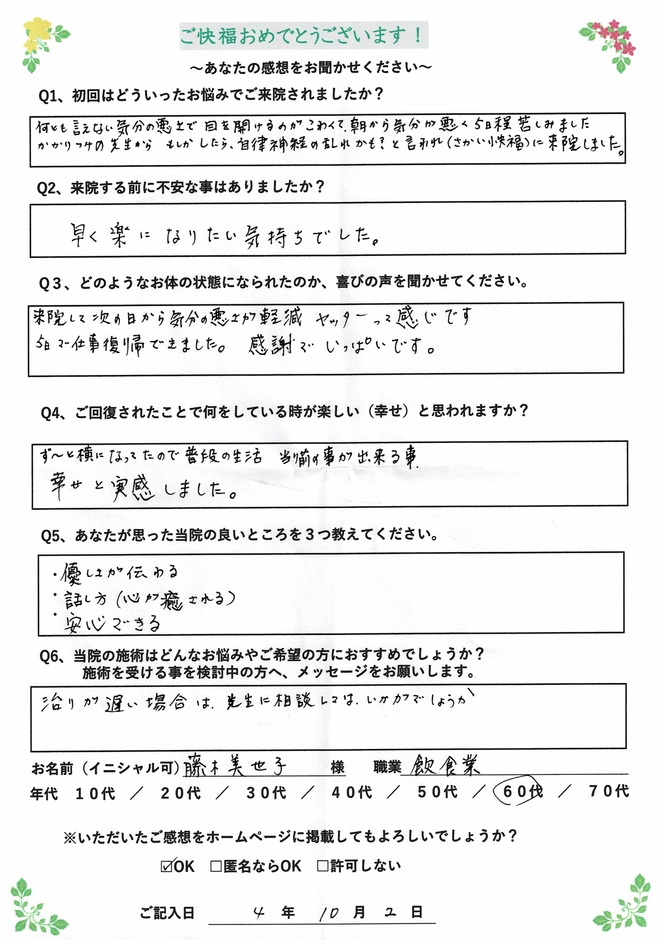 ご快福おめでとうございます！
～あなたの感想をお聞かせください～
Q1、初回はどういったお悩みでご来院されましたか？
何とも言えない気分の悪さで 目を開けるのがこわくて、朝から気分が悪く 5日程 苦しみました
かかりつけの先生から もしかしたら、自律神経の乱れかも？と言われ(さかい快福)に来院しました。
Q2、来院する前に不安な事はありましたか？
早く楽になりたい気持ちでした。
Q３、どのようなお体の状態になられたのか、喜びの声を聞かせてください。
来院して次の日から気分の悪さが軽減 ヤッターって感じです
5日で仕事復帰できました。 感謝でいっぱいです。
Q4、ご回復されたことで何をしている時が楽しい（幸せ）と思われますか？
ず～と横になってたので普段の生活 当り前の事が出来る事、
幸せと実感しました。
Q5、あなたが思った当院の良いところを３つ教えてください。
・優しさが伝わる
・話し方（心が癒される）
・安心できる
Q6、当院の施術はどんなお悩みやご希望の方におすすめでしょうか？
施術を受ける事を検討中の方へ、メッセージをお願いします。
治りが遅い場合は、先生に相談しては、いかがでしょうか
お名前（イニシャル可）藤木美世子 様 職業 飲食業
年代 １０代 ／ ２０代 ／ ３０代 ／ ４０代 ／ ５０代 ／ ６０代 ／ ７０代
※いただいたご感想をホームページに掲載してもよろしいでしょうか？
☑OK □匿名ならOK □許可しない
ご記入日 4 年 10 月 2 日